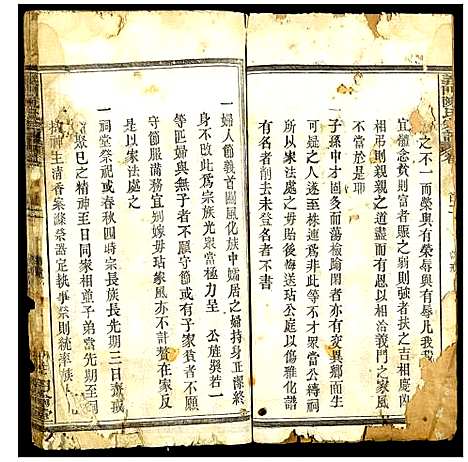 之不一而榮與有榮辱與有辱凡我
宜體念貧則富者賑之弱則強者扶之吉相慶凶
相弔則親親之道盡而有恩以相洽義門之家風
不當於是耶
一子孫中才固多而蕩檢踰閑者亦有交異鄉而生
可疑之人遂至株連為非此等不才眾當公縛祠
內以家法處之毋貽後悔送玷公庭以傷雅化譜
有名者削去未登名者不書
一婦人節義首關風化族中孀居之婦持身正潔終
而不改此為宗族光眾當極力呈
公旌異若一
等匹婦與無子者不願守節或有子家貧者不願
守節服滿務宜別嫁毋玷家風亦不許贅在家反
是以家法處之
一祠堂祭祀或春秋四時宗長族長先期三日齋戒
聚己之精神至日同家相嚴子弟當先期至日
神主清香案滌祭器定執事祭則統率族人
義門陳氏宗譜卷